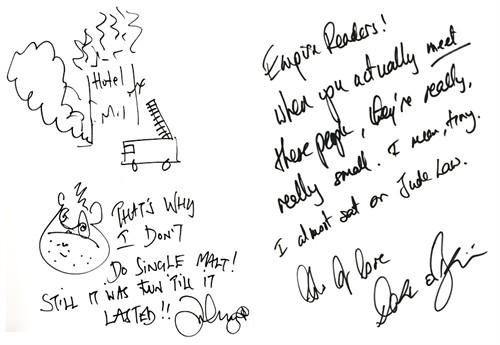 Hotel
Mil
THAT'S WHY
I DON'T
DO SINGLE MALT!
STILL IT WAS FUN TILL IT
LASTED!!
Empire Readers!
When you actually meet
these people, they're really,
really small. I mean, tiny.
I almost sat on Jude Law.
love